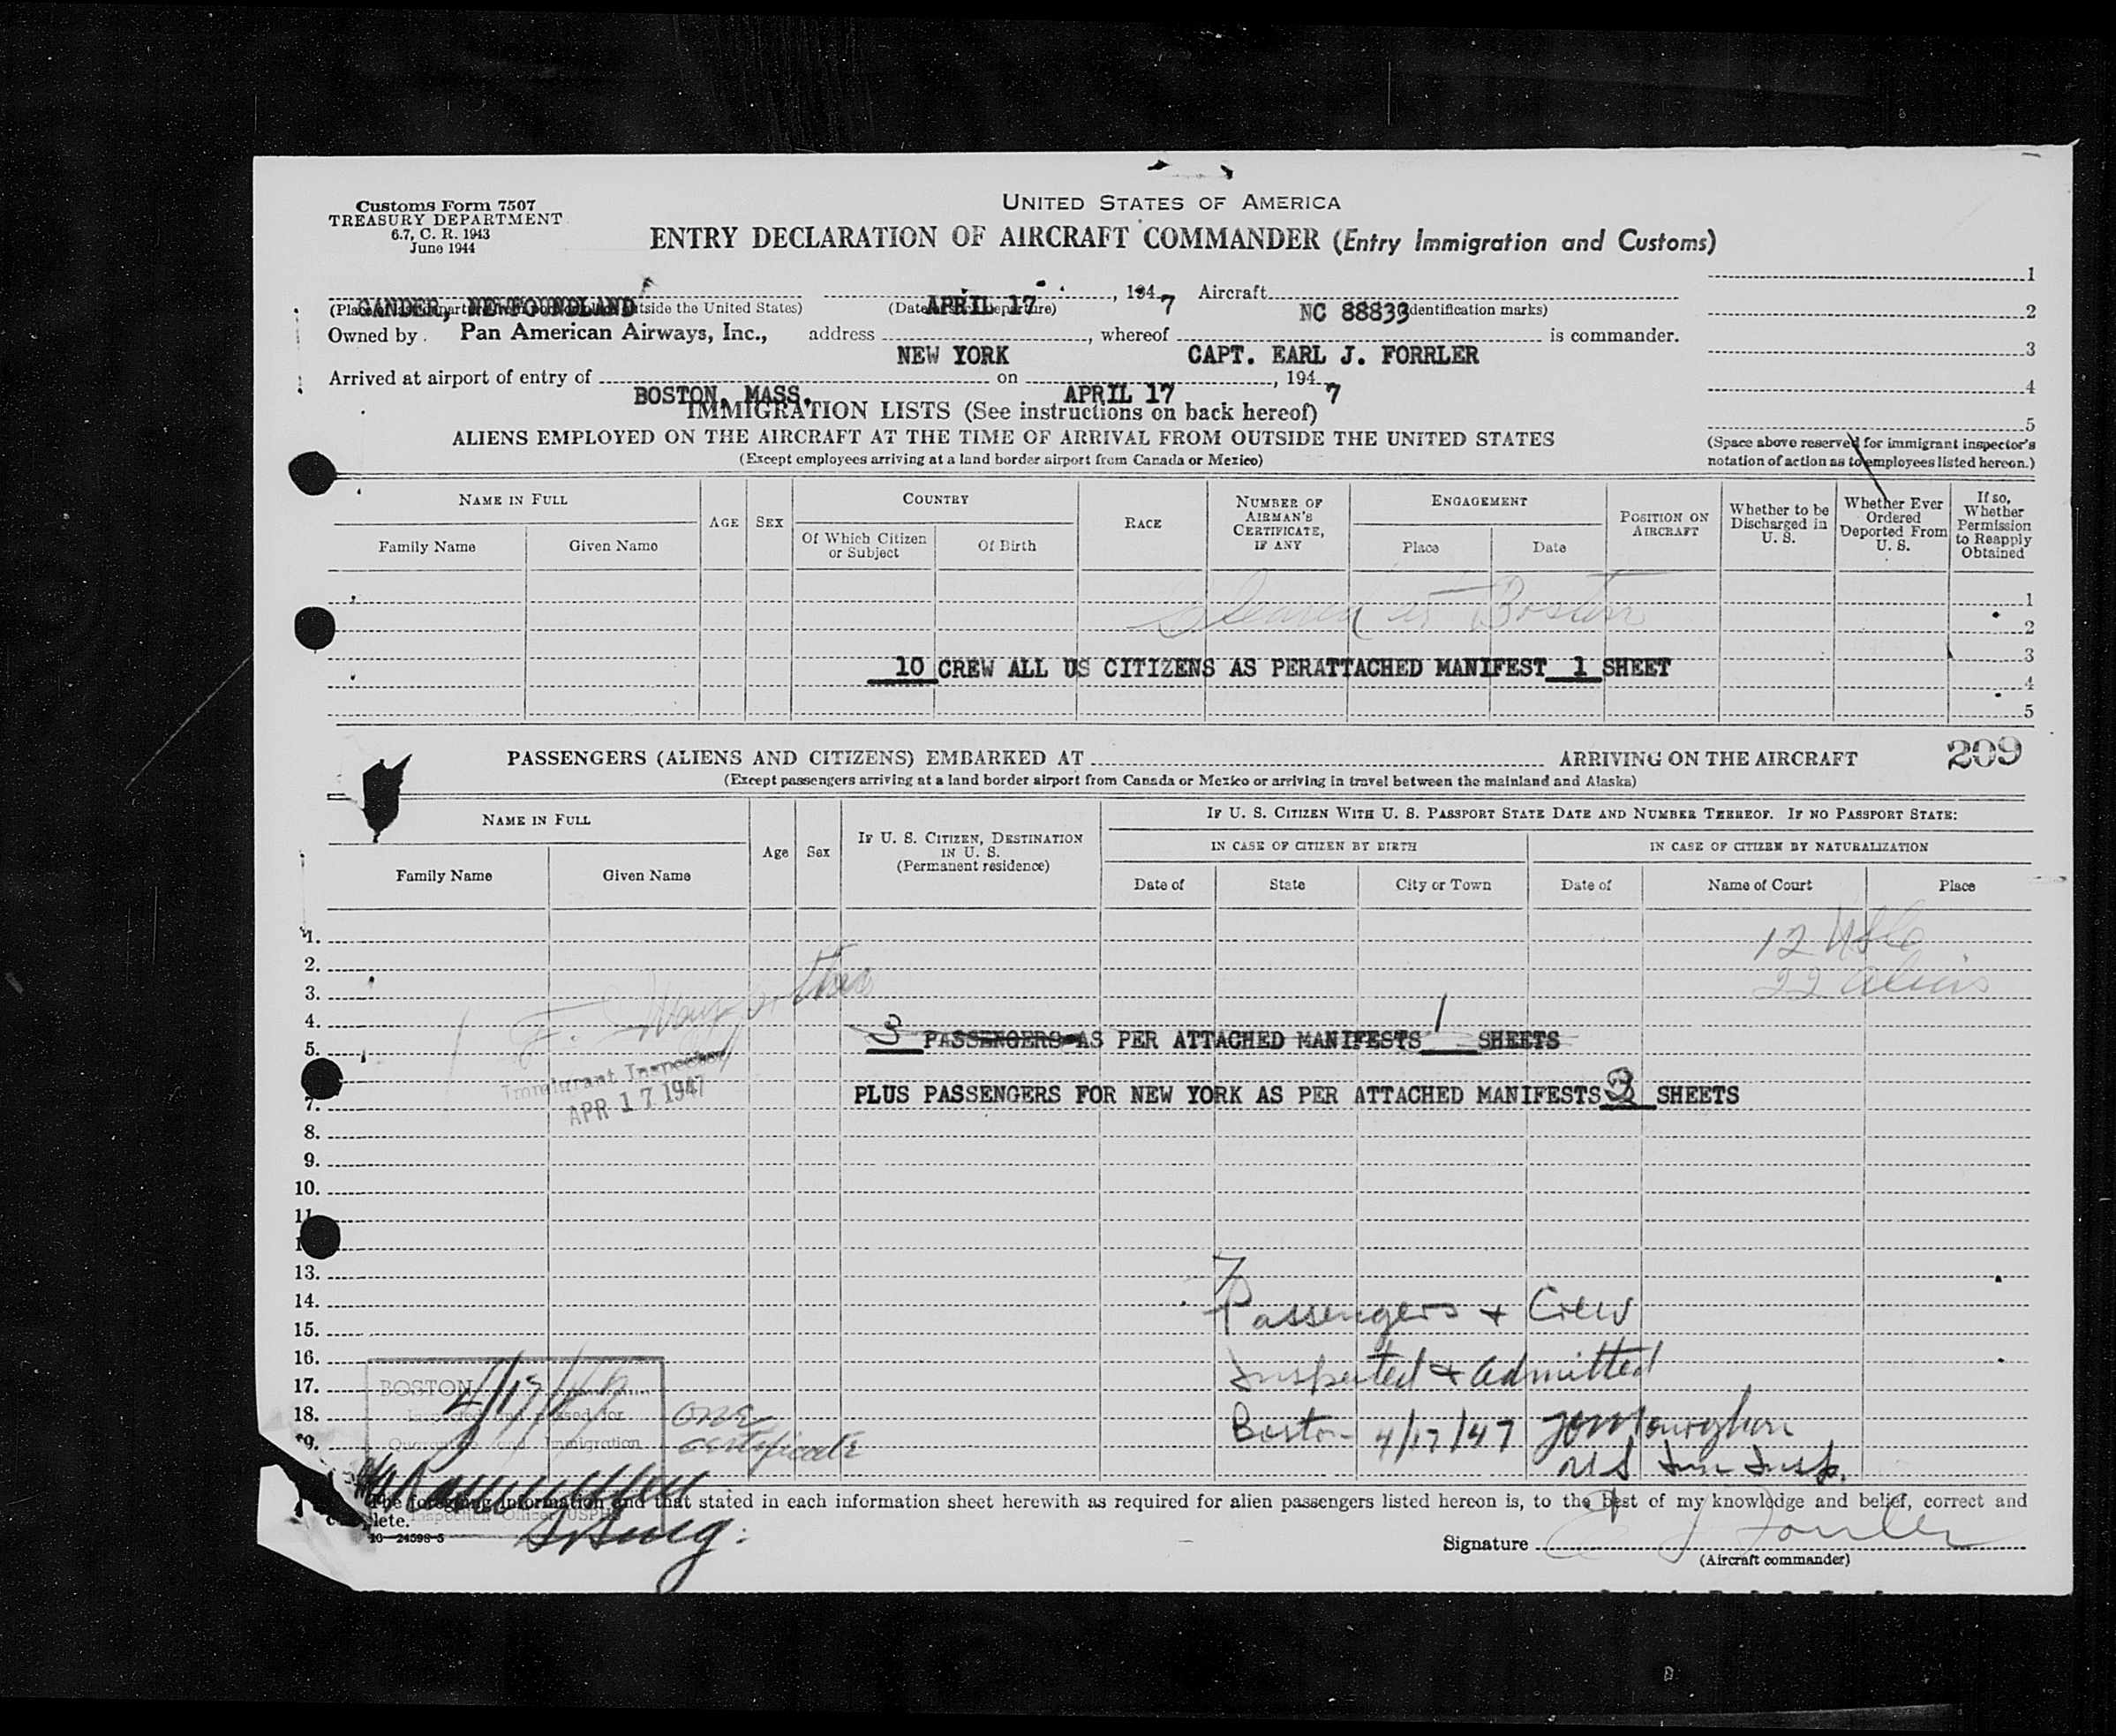 Customs Form 7507
TREASURY DEPARTMENT
6.7, C. R. 1943
June 1944
UNITED STATES OF AMERICA
ENTRY DECLARATION OF AIRCRAFT COMMANDER (Entry Immigration and Customs)
GANDER, NEWFOUNDLAND APRIL 17, 1947 Aircraft NC 88833
outside the United States) (identification marks)
Owned by Pan American Airways, Inc., address NEW YORK, whereof CAPT. EARL J. FORRLER is commander.
Arrived at airport of entry of BOSTON, MASS. on APRIL 17, 1947
1
2
3
4
5
(Space above reserved for immigrant inspector's
notation of action as to employees listed hereon.)
IMMIGRATION LISTS (See instructions on back hereof)
ALIENS EMPLOYED ON THE AIRCRAFT AT THE TIME OF ARRIVAL FROM OUTSIDE THE UNITED STATES
(Except employees arriving at a land border airport from Canada or Mexico)
NAME IN FULL
Family Name
Given Name
AGE
SEX
COUNTRY
Of Which Citizen or Subject
Of Birth
RACE
NUMBER OF AIRMAN'S CERTIFICATE, IF ANY
ENGAGEMENT
Place
Date
POSITION ON AIRCRAFT
Whether to be Discharged in U. S.
Whether Ever Ordered Deported From U. S.
If so, Whether Permission to Reapply Obtained
1
Cleared at Boston
2
3
10 CREW ALL US CITIZENS AS PERATTACHED MANIFEST 1 SHEET
4
5
PASSENGERS (ALIENS AND CITIZENS) EMBARKED AT ARRIVING ON THE AIRCRAFT 209
(Except passengers arriving at a land border airport from Canada or Mexico or arriving in travel between the mainland and Alaska)
NAME IN FULL
Family Name
Given Name
Age
Sex
IF U. S. CITIZEN, DESTINATION IN U. S.
(Permanent residence)
IF U. S. CITIZEN WITH U. S. PASSPORT STATE DATE AND NUMBER THEREOF. IF NO PASSPORT STATE:
IN CASE OF CITIZEN BY BIRTH
IN CASE OF CITIZEN BY NATURALIZATION
Date of
State
City or Town
Date of
Name of Court
Place
1.
12 USC
2.
22 Aliens
3.
4.
3 PASSENGERS AS PER ATTACHED MANIFESTS 1 SHEETS
5.
Immigrant Inspector
APR 17 1947
7.
PLUS PASSENGERS FOR NEW YORK AS PER ATTACHED MANIFESTS 3 SHEETS
8.
9.
10.
11.
13.
7
14.
Passengers + Crew
15.
16.
Inspected & Admitted
17.
BOSTON 4/17/47
18.
Inspected and passed for
one certificate
Boston 4/17/47
19.
Quarantine and Immigration
US Imm Insp.
The foregoing information and that stated in each information sheet herewith as required for alien passengers listed hereon is, to the best of my knowledge and belief, correct and
complete.
Inspection Officer USPHS
16—24598-5
Signature
(Aircraft commander)